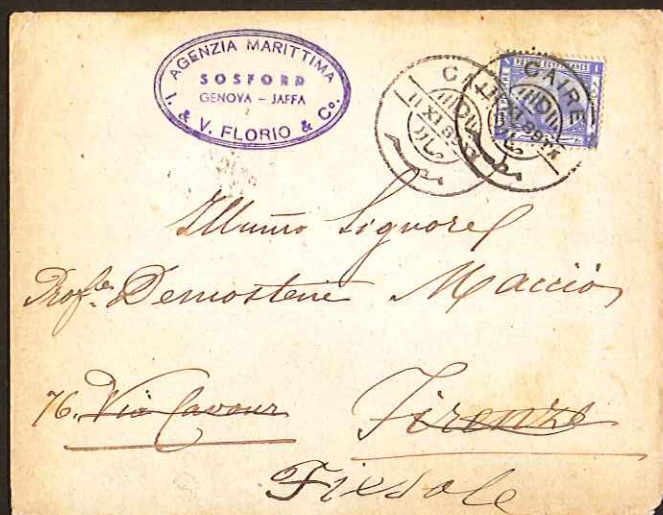 AGENZIA MARITTIMA
SOSFORD
GENOVA – JAFFA
I. & V. FLORIO & Co.
CAIRE
Illumo Signore
Profe. Demostene Macciò
76. Via Cavour Firenze
Fiesole